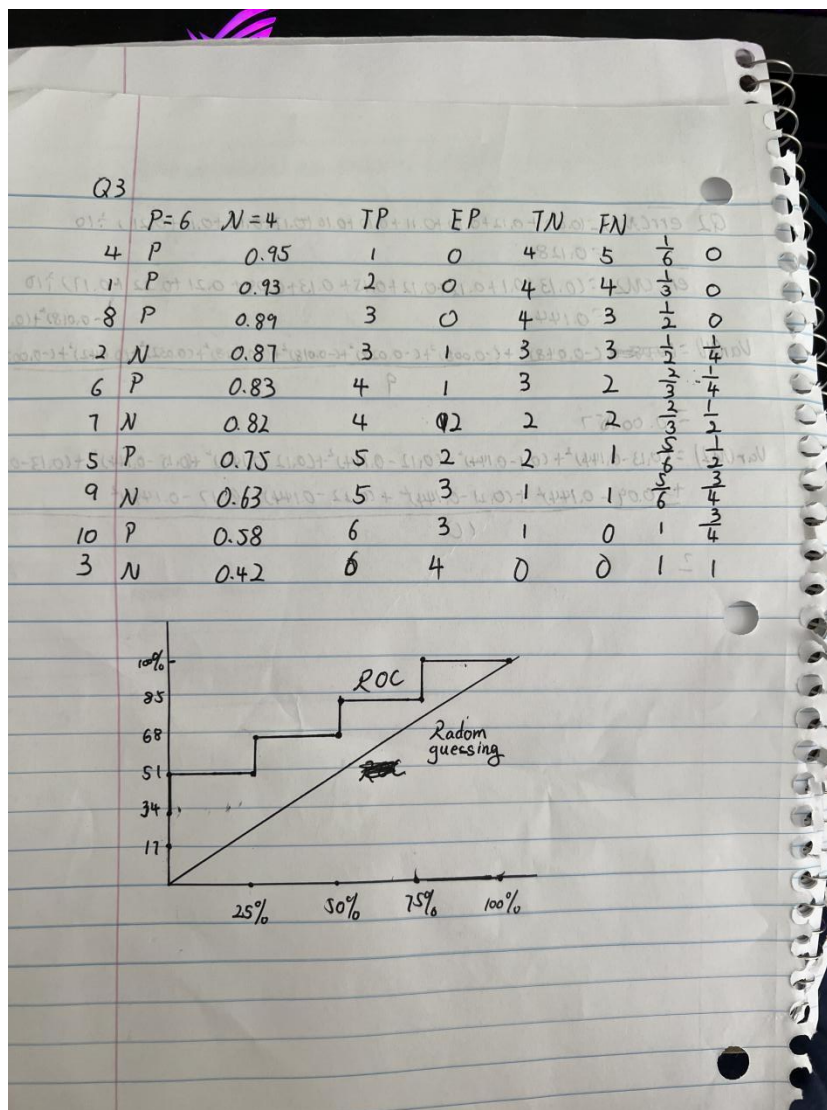 Q3
P=6 N=4 TP FP TN FN
4 P 0.95 1 0 4 5 1/6 0
1 P 0.93 2 0 4 4 1/3 0
8 P 0.89 3 0 4 3 1/2 0
2 N 0.87 3 1 3 3 1/2 1/4
6 P 0.83 4 1 3 2 2/3 1/4
7 N 0.82 4 2 2 2 2/3 1/2
5 P 0.75 5 2 2 1 5/6 1/2
9 N 0.63 5 3 1 1 5/6 3/4
10 P 0.58 6 3 1 0 1 3/4
3 N 0.42 6 4 0 0 1 1
100%
ROC
85
68
Radom
guessing
51
34
17
25% 50% 75% 100%